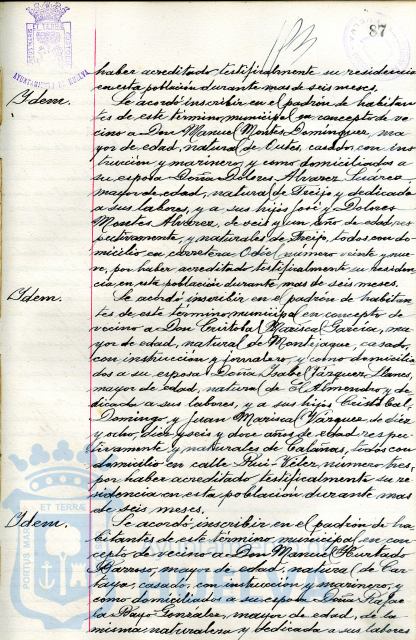 87
AYUNTAMIENTO DE HUELVA
haber acreditado testifical_mente su residencia
en esta población durante mas de seis meses.
Idem. Se acordó inscribir en el padrón de habitan-
tes de este término municipal en concepto de ve-
cino a Don Manuel Montes Domínguez, ma-
yor de edad, natural de casado, con ins-
trucción y marinero, y como domiciliados a
su esposa Doña Dolores Alvarez Suárez,
mayor de edad, natural de y dedicada
a sus labores, y a sus hijos José y Dolores
Alvarez, de seis y un año de edad, res-
pectivamente, y naturales de todos con do-
micilio en carretera Odiel número veinte y nue-
ve, por haber acreditado testificalmente su residen-
cia en este población durante mas de seis meses.
Idem. Se acordó inscribir en el padrón de habitan-
tes de este término municipal en concepto de
vecino a Don Cristobal Marisca García, ma-
yor de edad, natural de Montejaque, casado,
con instrucción y jornalero, y como domicilia-
dos a su esposa Doña Isabel Vázquez Llanes,
mayor de edad, natural de El Almendro y de-
dicada a sus labores, y a sus hijos Cristobal,
Domingo y Juan Marisca Vázquez, de diez
y ocho, diez y seis y doce años de edad respec-
tivamente y naturales de Calañas, todos con
domicilio en calle Ruiz Vélez, número tres,
por haber acreditado testificalmente su re-
sidencia en esta población durante mas
de seis meses.
Idem. Se acordó inscribir en el padrón de ha-
bitantes de este término municipal en con-
cepto de vecino a Don Manuel Hurtado
Barroso, mayor de edad, natural de Car-
taya, casado, con instrucción y marinero, y
como domiciliados a su esposa Doña Rafae-
la Bayo González, mayor de edad, de la
misma naturaleza y dedicada a sus labores
ET TERRAE
PORTUS MARIS